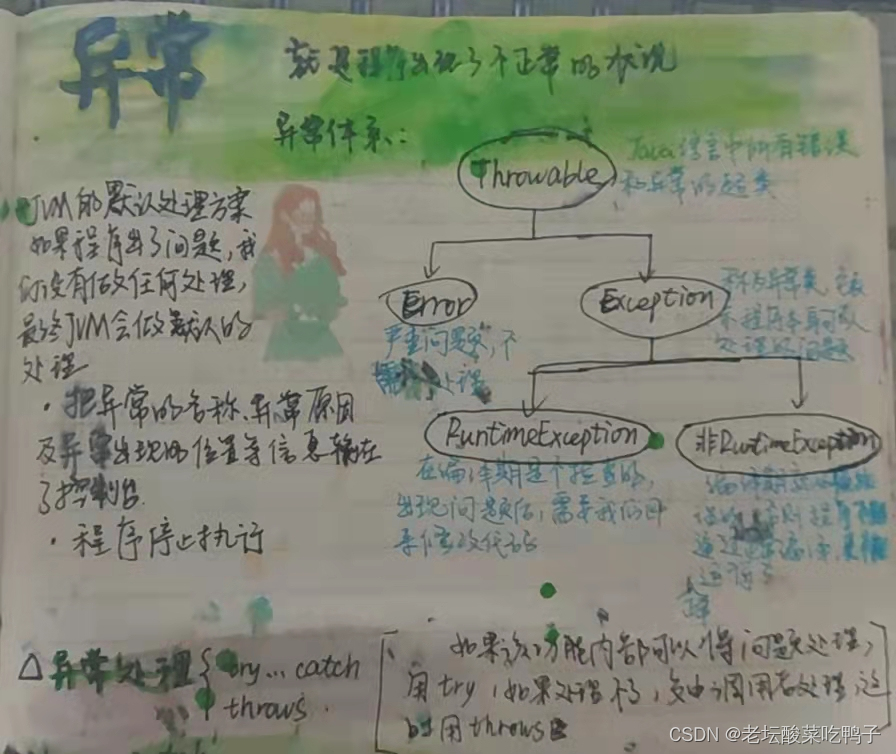 异常
就是程序出现了不正常的状况
异常体系:
Throwable
Java语言中所有错误
和异常的超类
JVM的默认处理方案
如果程序出了问题,我
们没有做任何处理,
最终JVM会做默认的
处理
·把异常的名称、异常原因
及异常出现的位置等信息输在
了控制台
·程序停止执行
Error
严重问题,不
处理
Exception
称为异常类,它表
示程序本身可以
处理的问题
RuntimeException
在编译期是不检查的,
出现问题后,需要我们回
来修改代码
非RuntimeException
编译期
否则程序
通过
△异常处理{try...catch
throws
如果该功能内部可以将问题处理,
用try,如果处理不了,交由调用者处理,这
时用throws
CSDN @老坛酸菜吃鸭子